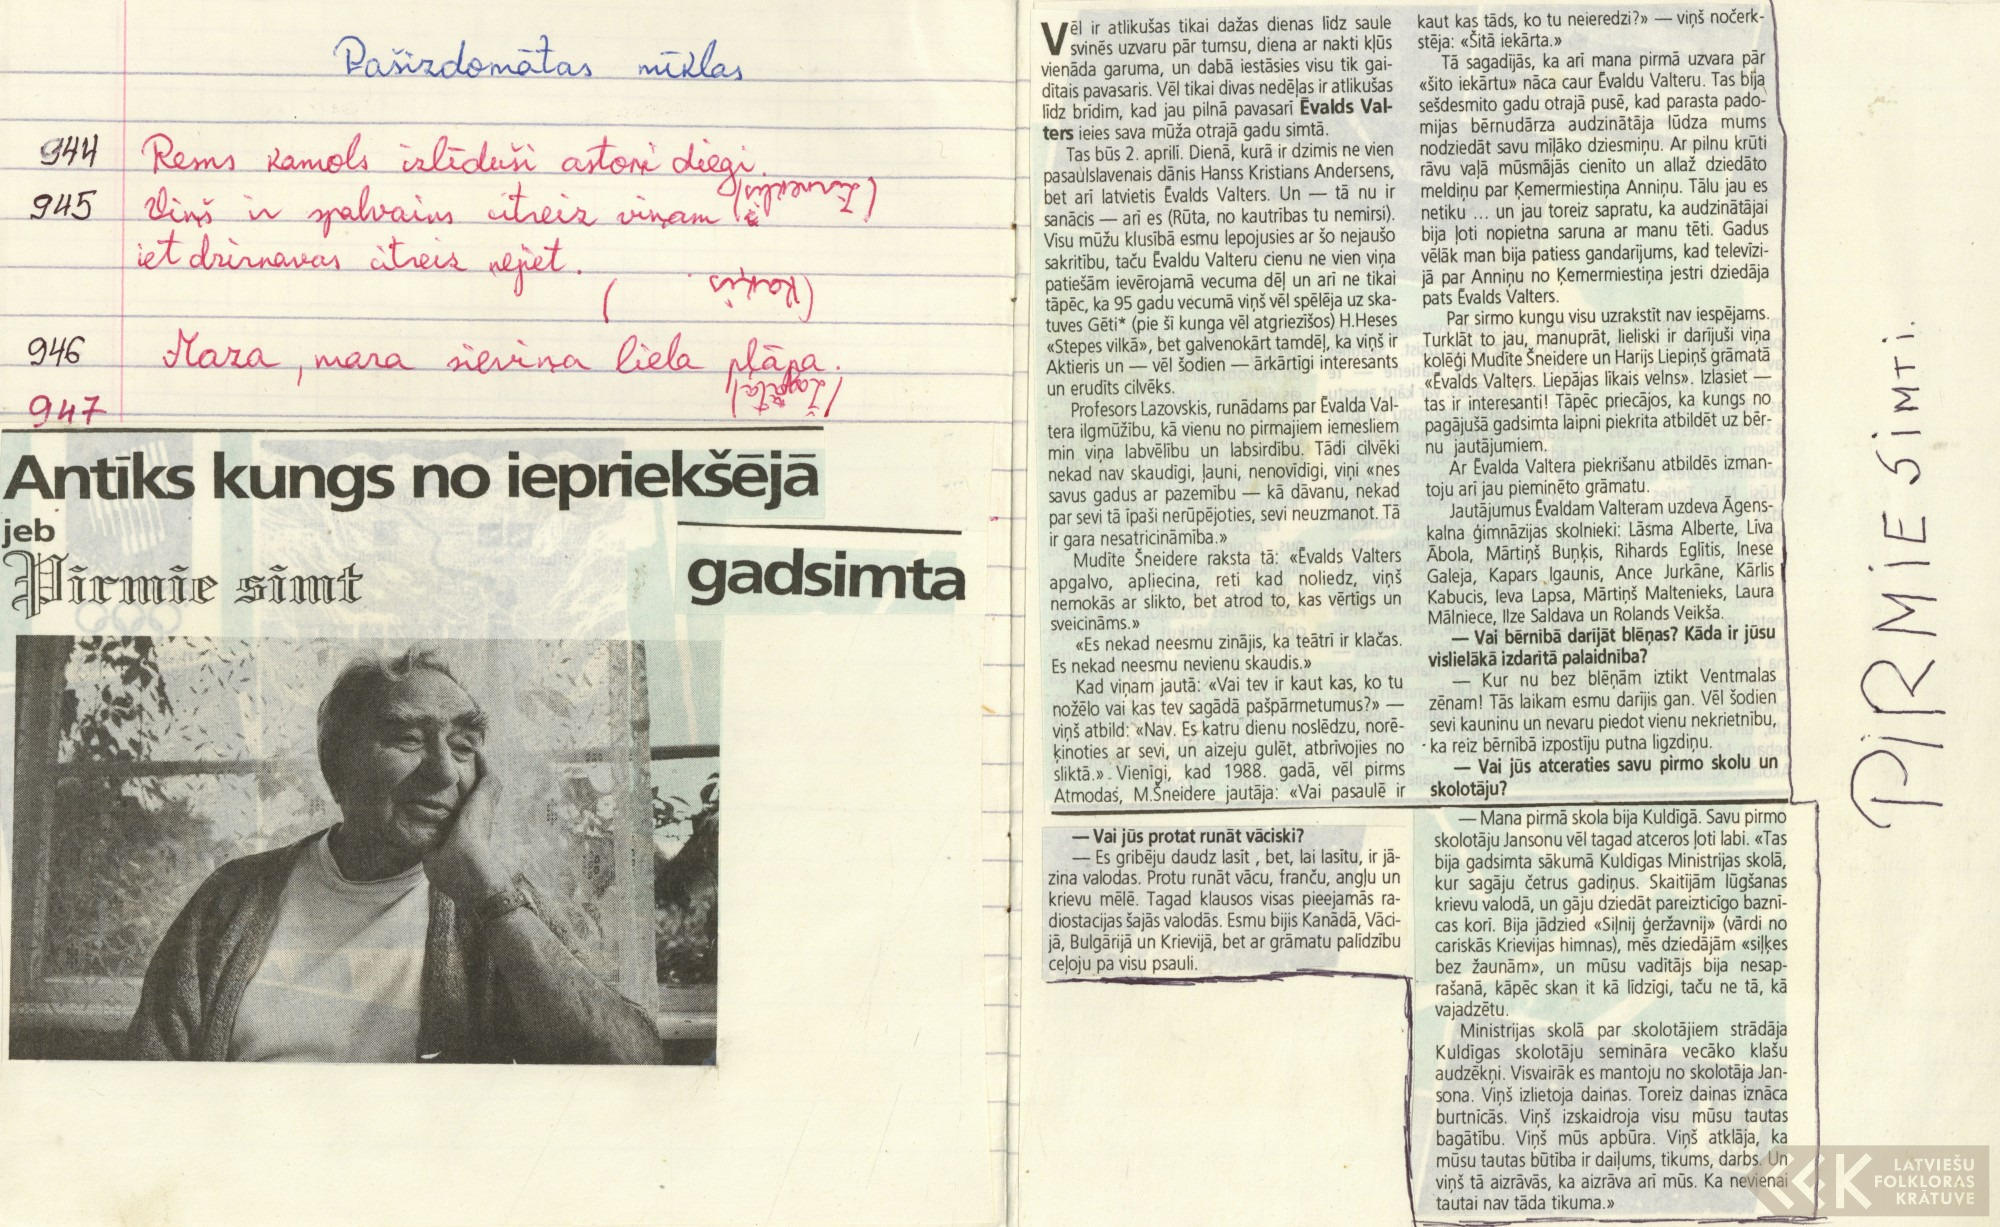 Pašizdomātas mīklas
944 Resns kamols izlīduši astoņi diegi.
(Zirneklis)
945 Viņš ir spalvains citreiz viņam
iet dzirnavas citreiz nejiet.
(Kaķis)
946 Maza, maza sieviņa liela pļāpa.
(Žagata)
947
Antīks kungs no iepriekšējā
gadsimta
jeb
Pirmie simt
Vēl ir atlikušas tikai dažas dienas līdz saule
svinēs uzvaru pār tumsu, diena ar nakti kļūs
vienāda garuma, un dabā iestāsies visu tik gai-
dītais pavasaris. Vēl tikai divas nedēļas ir atlikušas
līdz brīdim, kad jau pilnā pavasarī Ēvalds Val-
ters ieies sava mūža otrajā gadu simtā.
Tas būs 2. aprīlī. Dienā, kurā ir dzimis ne vien
pasaulslavenais dānis Hanss Kristians Andersens,
bet arī latvietis Ēvalds Valters. Un — tā nu ir
sanācis — arī es (Rūta, no kautrības tu nemirsi).
Visu mūžu klusībā esmu lepojusies ar šo nejaušo
sakritību, taču Ēvaldu Valteru cienu ne vien viņa
patiešām ievērojamā vecuma dēļ un arī ne tikai
tāpēc, ka 95 gadu vecumā viņš vēl spēlēja uz ska-
tuves Gēti* (pie šī kunga vēl atgriezīšos) H.Heses
«Stepes vilkā», bet galvenokārt tamdēļ, ka viņš ir
Aktieris un — vēl šodien — ārkārtīgi interesants
un erudīts cilvēks.
Profesors Lazovskis, runādams par Ēvalda Val-
tera ilgmūžību, kā vienu no pirmajiem iemesliem
min viņa labvēlību un labsirdību. Tādi cilvēki
nekad nav skaudīgi, ļauni, nenovīdīgi, viņi «nes
savus gadus ar pazemību — kā dāvanu, nekad
par sevi tā īpaši nerūpējoties, sevi neuzmanot. Tā
ir gara nesatricināmība.»
Mudīte Šneidere raksta tā: «Ēvalds Valters
apgalvo, apliecina, reti kad noliedz, viņš
nemokās ar slikto, bet atrod to, kas vērtīgs un
sveicināms.»
«Es nekad neesmu zinājis, ka teātrī ir klačas.
Es nekad neesmu nevienu skaudis.»
Kad viņam jautā: «Vai tev ir kaut kas, ko tu
nožēlo vai kas tev sagādā pašpārmetumus?» —
viņš atbild: «Nav. Es katru dienu noslēdzu, norē-
ķinoties ar sevi, un aizeju gulēt, atbrīvojies no
sliktā.» Vienīgi, kad 1988. gadā, vēl pirms
Atmodas, M.Šneidere jautāja: «Vai pasaulē ir
kaut kas tāds, ko tu neieredzi?» — viņš nočerk-
stēja: «Šitā iekārta.»
Tā sagadījās, ka arī mana pirmā uzvara pār
«šito iekārtu» nāca caur Ēvaldu Valteru. Tas bija
sešdesmito gadu otrajā pusē, kad parasta pado-
mijas bērnudārza audzinātāja lūdza mums
nodziedāt savu mīļāko dziesmiņu. Ar pilnu krūti
rāvu vaļā mūsmājās cienīto un allaž dziedāto
meldiņu par Ķemermiestiņa Anniņu. Tālu jau es
netiku ... un jau toreiz sapratu, ka audzinātājai
bija ļoti nopietna saruna ar manu tēti. Gadus
vēlāk man bija patiess gandarījums, kad televīzi-
jā par Anniņu no Ķemermiestiņa jestri dziedāja
pats Ēvalds Valters.
Par sirmo kungu visu uzrakstīt nav iespējams.
Turklāt to jau, manuprāt, lieliski ir darījuši viņa
kolēģi Mudīte Šneidere un Harijs Liepiņš grāmatā
«Ēvalds Valters. Liepājas līkais velns». Izlasiet —
tas ir interesanti! Tāpēc priecājos, ka kungs no
pagājušā gadsimta laipni piekrita atbildēt uz bēr-
nu jautājumiem.
Ar Ēvalda Valtera piekrišanu atbildēs izman-
toju arī jau pieminēto grāmatu.
Jautājumus Ēvaldam Valteram uzdeva Āgens-
kalna ģimnāzijas skolnieki: Lāsma Alberte, Līva
Ābola, Mārtiņš Buņķis, Rihards Eglītis, Inese
Galeja, Kapars Igaunis, Ance Jurkāne, Kārlis
Kabucis, Ieva Lapsa, Mārtiņš Maltenieks, Laura
Mālniece, Ilze Saldava un Rolands Veikša.
— Vai bērnībā darījāt blēņas? Kāda ir jūsu
vislielākā izdarītā palaidnība?
— Kur nu bez blēņām iztikt Ventmalas
zēnam! Tās laikam esmu darījis gan. Vēl šodien
sevi kauninu un nevaru piedot vienu nekrietnību,
ka reiz bērnībā izpostīju putna ligzdiņu.
— Vai jūs atceraties savu pirmo skolu un
skolotāju?
— Mana pirmā skola bija Kuldīgā. Savu pirmo
skolotāju Jansonu vēl tagad atceros ļoti labi. «Tas
bija gadsimta sākumā Kuldīgas Ministrijas skolā,
kur sagāju četrus gadiņus. Skaitījām lūgšanas
krievu valodā, un gāju dziedāt pareizticīgo baznī-
cas korī. Bija jādzied «Siļnij ģeržavnij» (vārdi no
cariskās Krievijas himnas), mēs dziedājām «siļķes
bez žaunām», un mūsu vadītājs bija nesap-
rašanā, kāpēc skan it kā līdzīgi, taču ne tā, kā
vajadzētu.
Ministrijas skolā par skolotājiem strādāja
Kuldīgas skolotāju semināra vecāko klašu
audzēkņi. Visvairāk es mantoju no skolotāja Jan-
sona. Viņš izlietoja dainas. Toreiz dainas iznāca
burtnīcās. Viņš izskaidroja visu mūsu tautas
bagātību. Viņš mūs apbūra. Viņš atklāja, ka
mūsu tautas būtība ir daiļums, tikums, darbs. Un
viņš tā aizrāvās, ka aizrāva arī mūs. Ka nevienai
tautai nav tāda tikuma.»
— Vai jūs protat runāt vāciski?
— Es gribēju daudz lasīt , bet, lai lasītu, ir jā-
zina valodas. Protu runāt vācu, franču, angļu un
krievu mēlē. Tagad klausos visas pieejamās ra-
diostacijas šajās valodās. Esmu bijis Kanādā, Vāci-
jā, Bulgārijā un Krievijā, bet ar grāmatu palīdzību
ceļoju pa visu psauli.
PIRMIE SIMTI.
LATVIEŠU
FOLKLORAS
KRĀTUVE